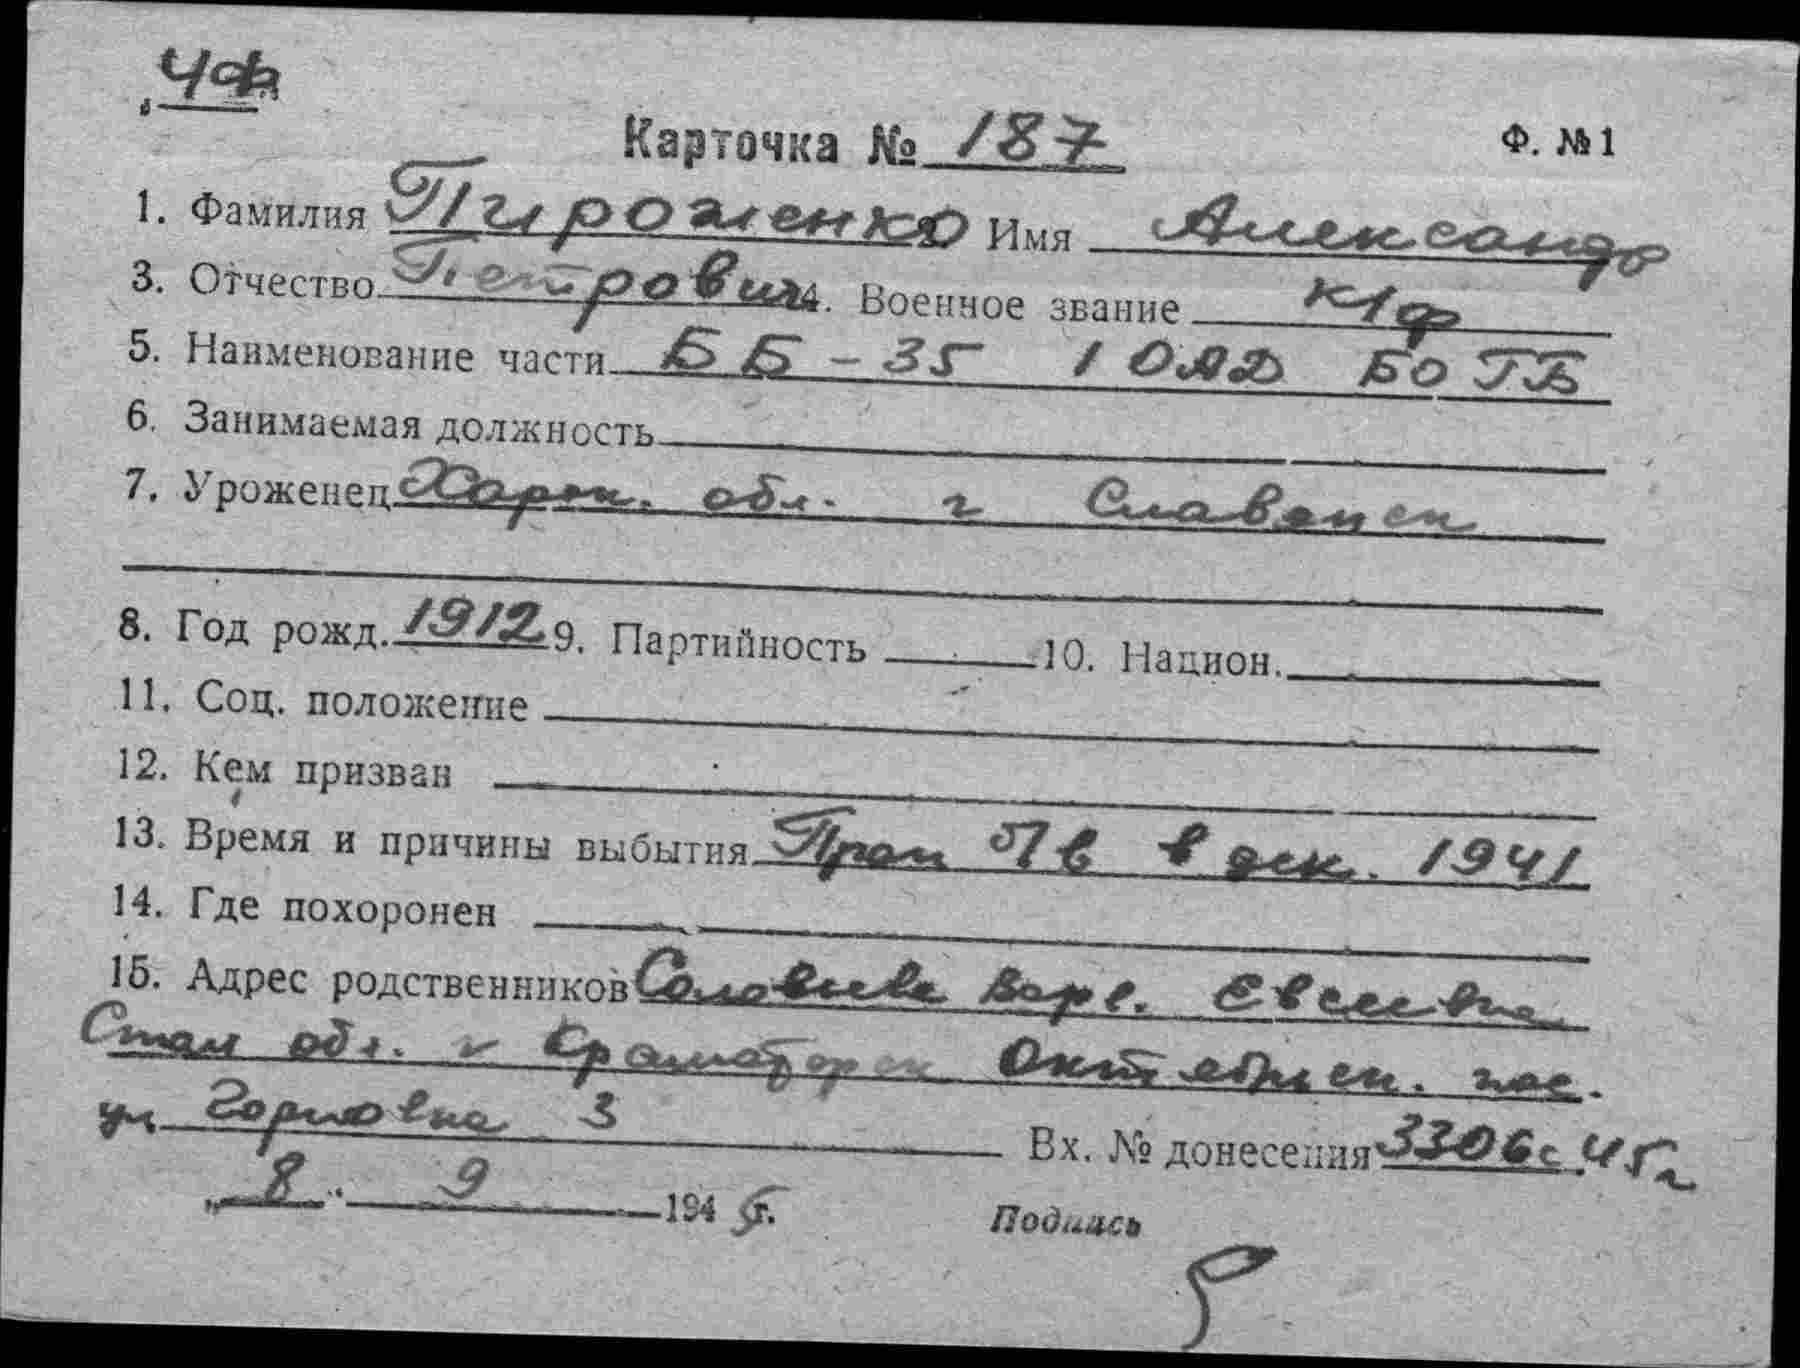 ЧФ
Карточка № 187 Ф. №1
1. Фамилия Пироженко Имя Александр
3. Отчество Петрович 4. Военное звание к/ф
5. Наименование части ББ-35 1 ОАД БО ГБ
6. Занимаемая должность
7. Уроженец Харьк. обл. г Славянск
8. Год рожд. 1912 9. Партийность 10. Национ.
11. Соц. положение
12. Кем призван
13. Время и причины выбытия Проп Пв в дек. 1941
14. Где похоронен
15. Адрес родственников Варв. Евсеевна
Стал обл. г Краматорск Октябрьск. пос.
ул 3 Вх. № донесения 3306с 45г
„8" 9 1945г. Подпись